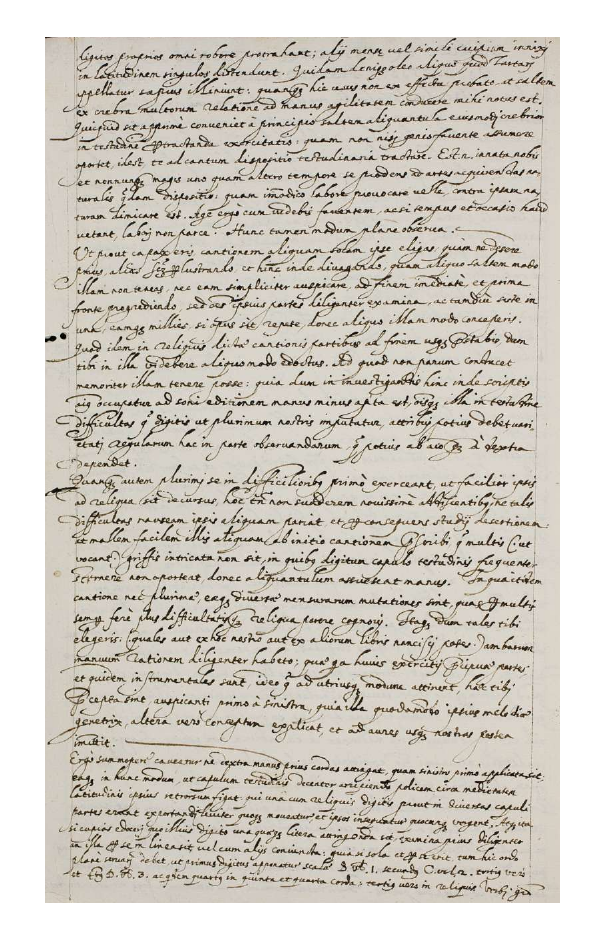 digitos proprios omni robore protrahant; alij mensæ vel simile cuipiam innixi
in latitudinem singulos distendunt. Quidam deniq; oleo aliquo quod Tartari
appellatur sæpius illiniunt: quamq; hic usus non ex effectu probato, ut saltem
ex crebra multorum relatione ad manus agilitatem conducere mihi notus est.
Quicquid sit apprime conveniet à principio saltem aliquantula eiusmodj crebrior
in testudine pertractanda exercitatio: quam non nisj genio favente assumere
oportet, id est, te ad cantum dispositio testudinaria tractare. Est n. innata nobis
et nonnunq; magis uno quam altero tempore se prodens ad artes acquirendas na-
turalis quædam dispositio: quam immodico labore provocare velle, contra ipsam na-
turam dimicare est. Age ergo cum videbis faventem, ac si tempus et occasio haud
vetant, laborj non parce. Hunc tamen modum plane observa.
Ut prout capax eris cantionem aliquam solam ipse eligas, quam ne differe
prius, alias perlustrando, et hinc inde divagando, quam aliquo saltem modo
illam non tenens, nec eam simpliciter auspicare, ad finem immediatè, et prima
fronte progrediendo, sed oēs ipsius partes diligenter examina, ac tamdiu siste in
una, eamq; millies, si opus sit, repete, donec aliquo illam modo conceperis.
Quod idem in reliquis dictæ cantionis partibus ad finem usq; præstabis, dum
tibi in illa videbere aliquo modo edoctus. Ad quod non parum conducet
memoriter illam tenere posse: quia dum in investigandis hinc inde scriptis
occupatur ad soni editionem manus minus apta est, illa in testudine
difficultas q̄ digitis ut plurimum nostris imputatur, attribuj potius debet vari-
etati regularum hac in parte observandarum q̄ potius ab à dextra
dependet.
Quamq; autem plurimj se in difficilioribus primò exerceant, ut facilior ipsis
ad reliqua sit decursus, hoc tn̄ non suaderem novissime, ne talis
difficultas nauseam ipsis aliquam pariat et per consequens studij desertionem:
at mallem facilem illis aliquam ab initio cantionem præscribi q̄ multis (ut
vocant) griffis intricata non sit, in quibus digitum capulo testudinis frequenter
sternere non oporteat, donec aliquantulum assuescant manus. In qua itidem
cantione nec plurimæ, eæq; diversæ mensurarum mutationes sint, quæ multis
semp fere plus difficultatis q; reliqua parere cognovj. Itaq; dum tales tibi
elegeris (quales aut ex hoc nostro aut ex aliorum libris nancisci potes) jam harum
manuum rationem diligenter habeto; quæ q̄a huius exercitij præcipuæ partes
et quidem instrumentales sunt, ideo q̄ ad utriusq; motum attinent, hæc tibi
præcepta sint, auspicanti primò à sinistra, quia illa quodammodo ipsius melodiæ
genetrix, altera verò conceptum explicat, et ad aures usq; nostras postea
immittit.
Ergò summoperè caveatur ne dextra manus prius cordas attingat, quam sinistra primò applicata sit,
eaq; in hunc modum, ut capulum testudinis decenter arripiendo policem circa medietatem
latitudinis ipsius retrorsum figat: qui una cum reliquis digitis prout in diversas capuli
partes erunt exporrigendj moveatur, et ipsos insequatur
si cupias edocerj quo illius digito una quæq; litera attingenda sit, examina prius diligenter
an illa per se in linea sit vel cum alijs coniuncta: quia si sola et per se erit, tum hic ordo
plane servarj debet, ut primus digitus apponatur scalæ B vel 1. secundus C. vel 2. tertius verò
et D. vel 3. ac quartus in quinta et quarta corda; tertius verò in reliquis